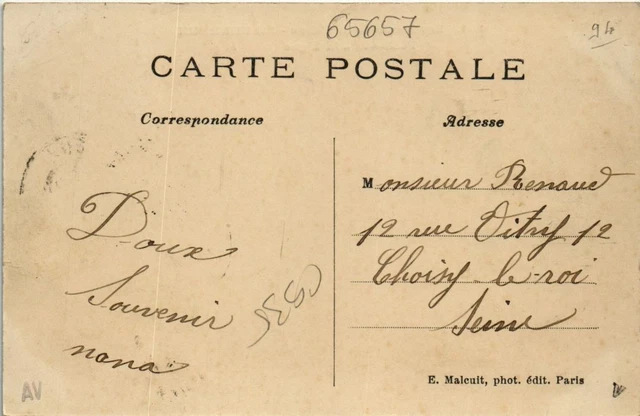 65657
94
CARTE POSTALE
Correspondance
Adresse
Doux
Souvenir
nana
Monsieur Renaud
12 rue Vitry 12
Choisy-le-roi
Seine
E. Malcuit, phot. édit. Paris
AV